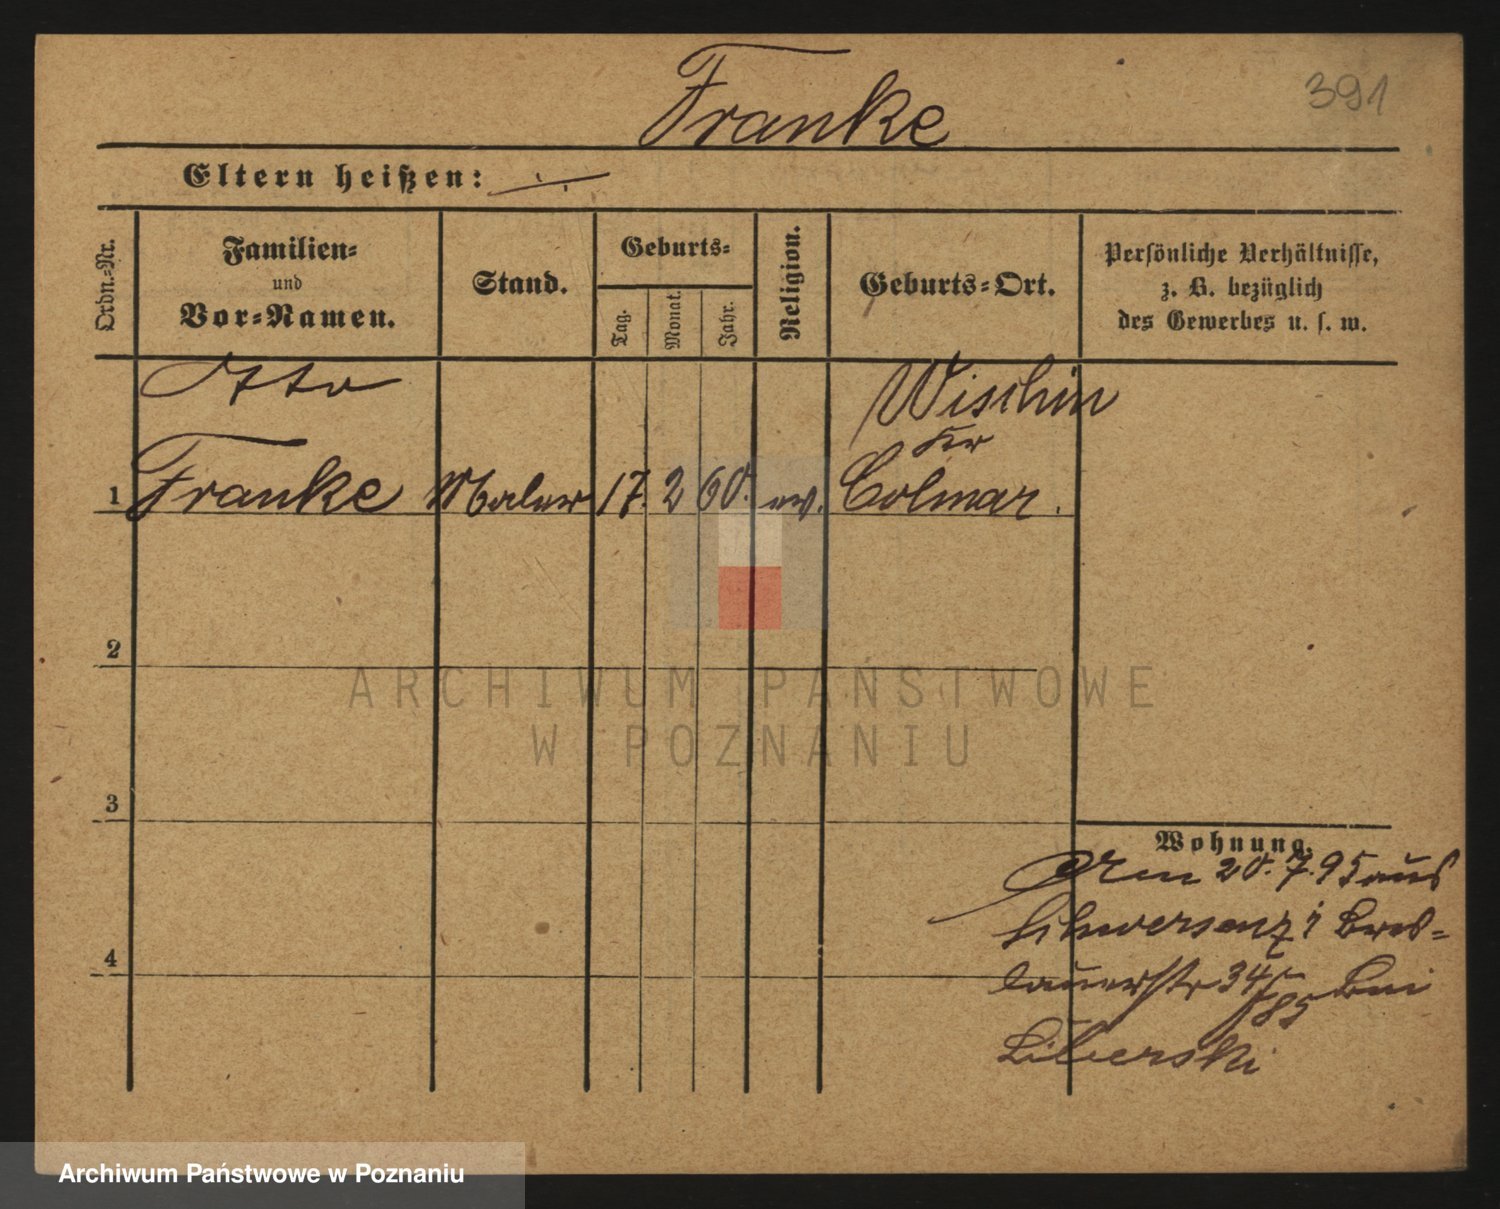 Franke
391
Eltern heißen: ./.
Ordn.-Nr.
Familien-
und
Vor-Namen.
Stand.
Geburts-
Tag.
Monat.
Jahr.
Religion.
Geburts-Ort.
Persönliche Verhältnisse,
z. B. bezüglich
des Gewerbes u. s. w.
Otto
Wischin
Kr
1 Franke Maler 17. 2 60. ev. Colmar.
2
3
4
Wohnung.
Am 20.7.95 aus
Schwersenz i Bres-
lauerstr 34/35 bei
Biberski
ARCHIWUM PAŃSTWOWE
W POZNANIU
Archiwum Państwowe w Poznaniu